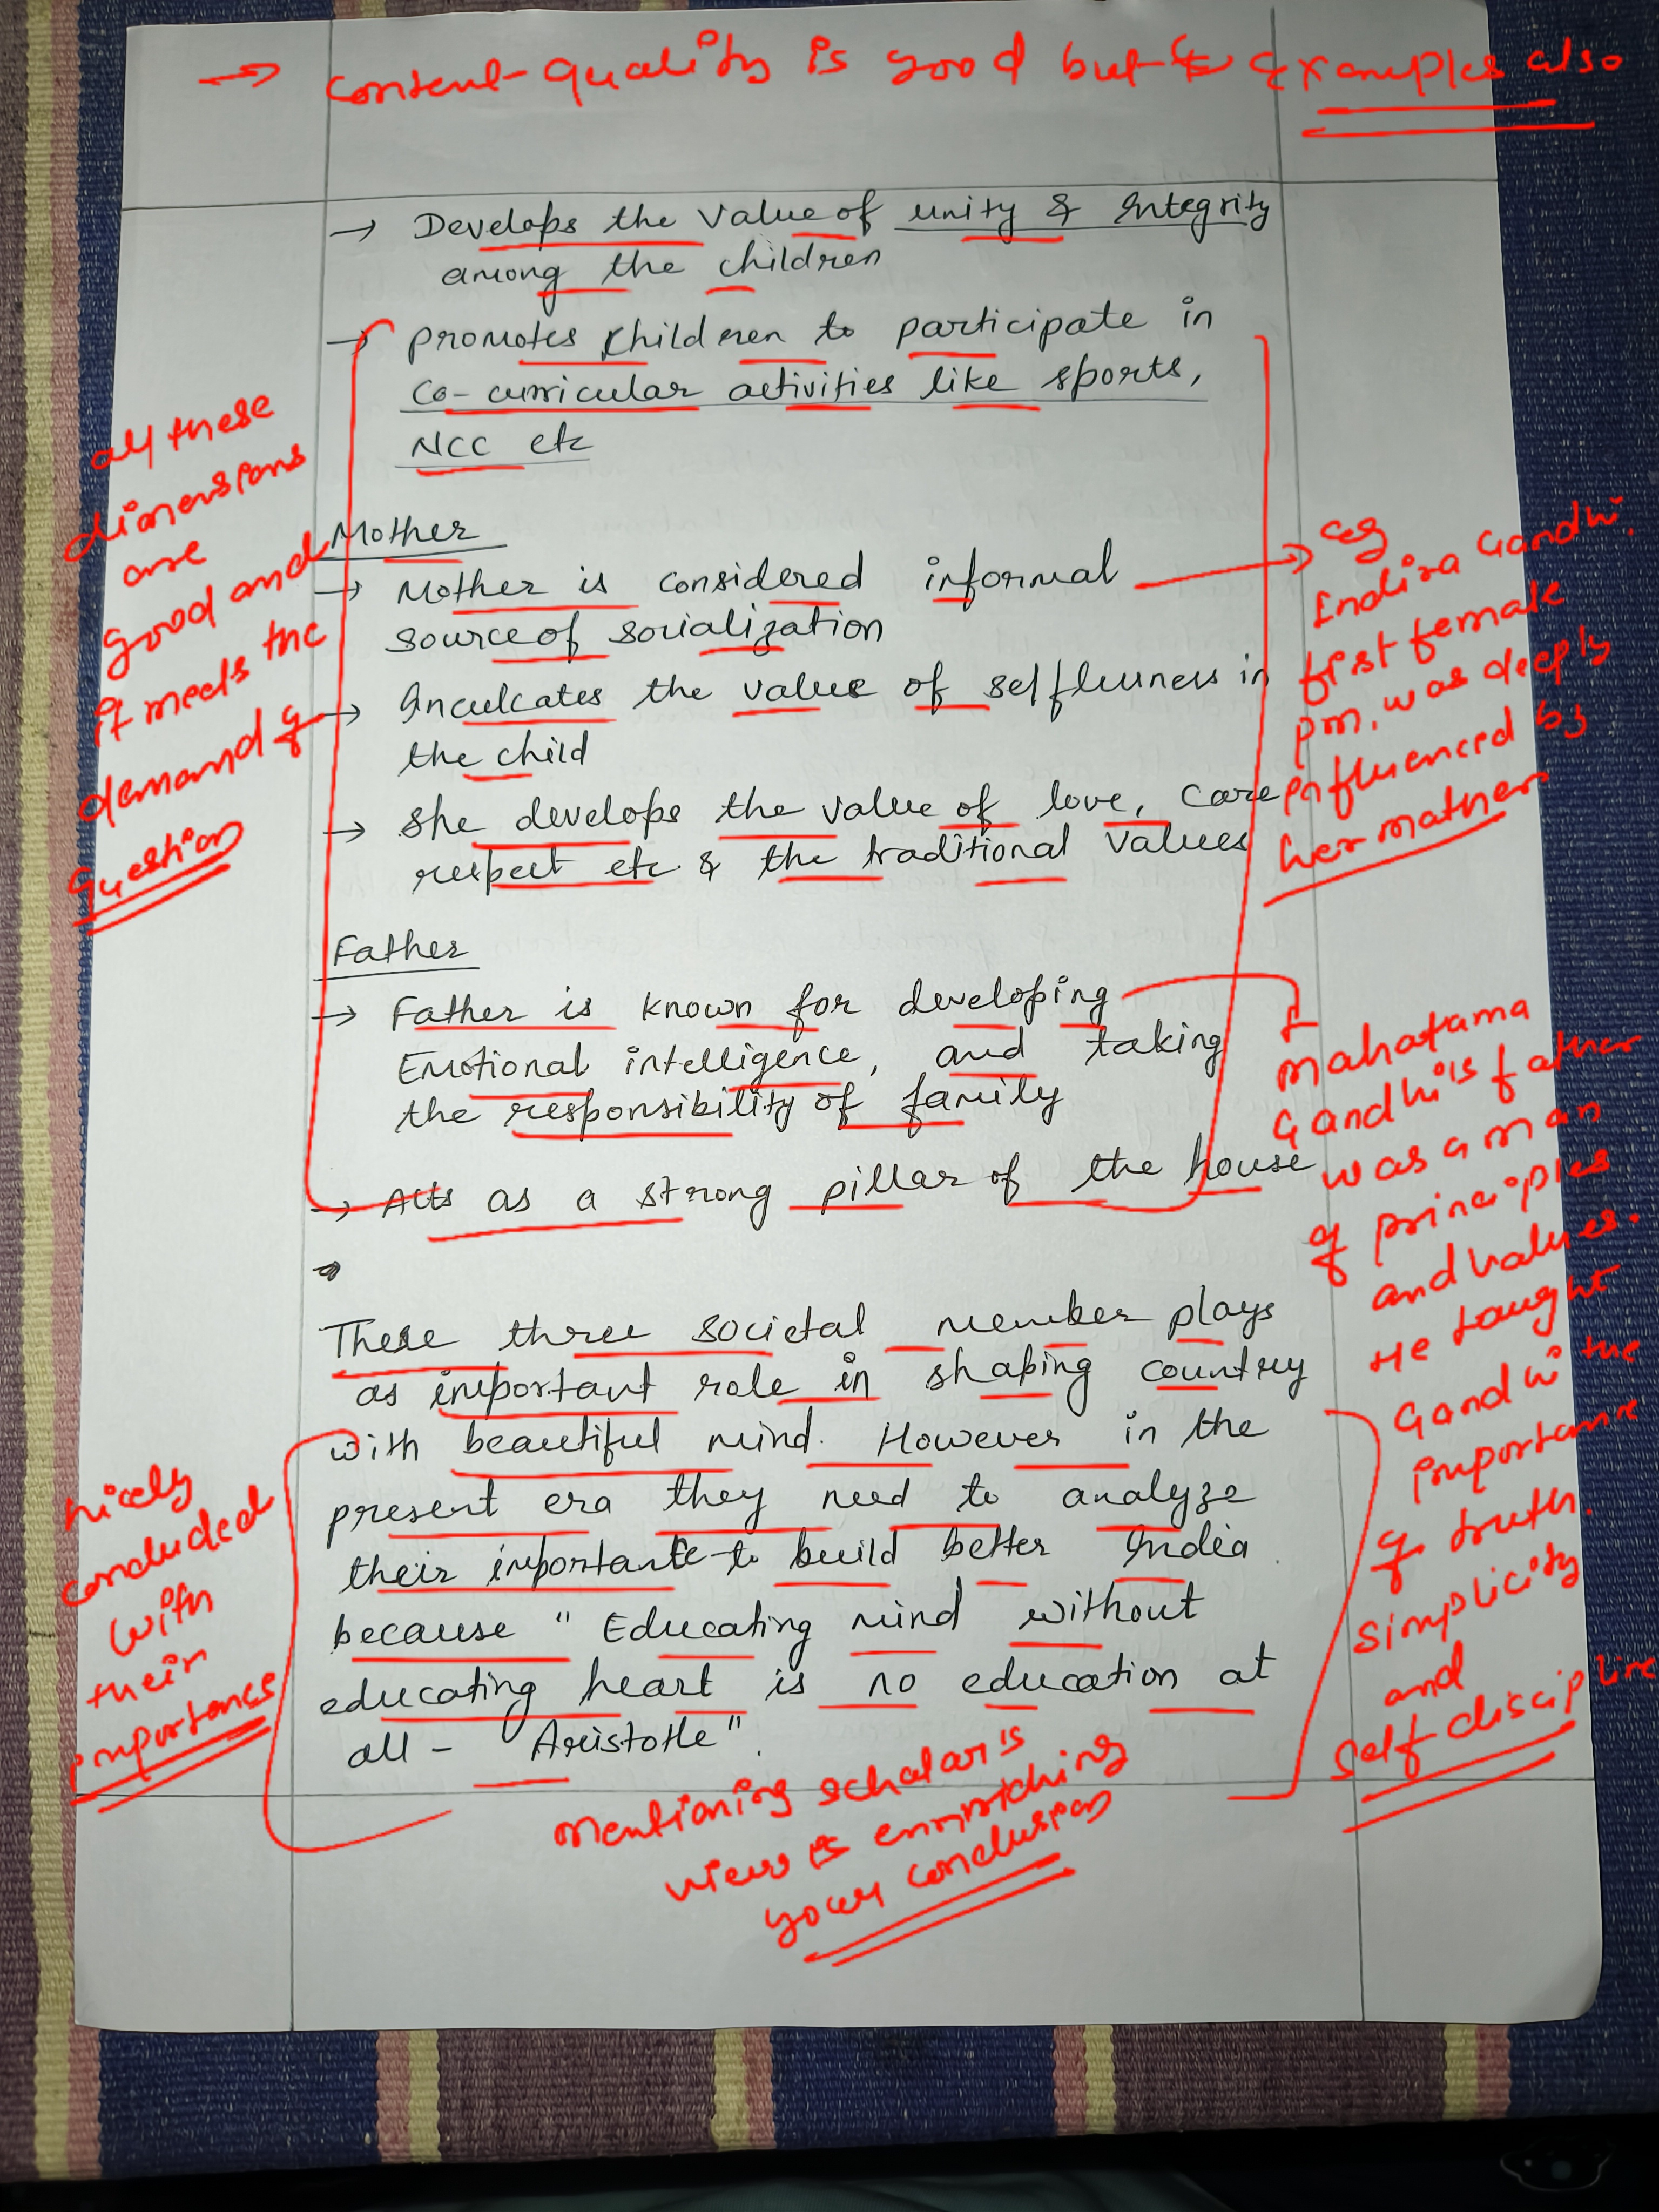 → content quality is good but examples also
→ Develops the value of unity & Integrity
among the children
→ promotes children to participate in
Co-curricular activities like sports,
NCC etc
all these
dimensions
are
good and
it meets the
demand of
question
Mother
→ Mother is considered informal
source of socialization
→ Inculcates the value of selflessness in
the child
→ She develops the value of love, care
respect etc & the traditional values
eg
Indira Gandhi.
first female
pm. was deeply
influenced by
her mother
Father
→ Father is known for developing
Emotional intelligence, and taking
the responsibility of family
→ Acts as a strong pillar of the house
Mahatama
Gandhi's father
was a man
of principles
and values.
He taught
Gandhi the
importance
of truth.
simplicity
and
self discipline
These three societal member plays
as important role in shaping country
with beautiful mind. However in the
present era they need to analyze
their importance to build better India
because "Educating mind without
educating heart is no education at
all - Aristotle".
nicely
concluded
with
their
importance
mentioning scholar's
view is ennriching
your conclusion